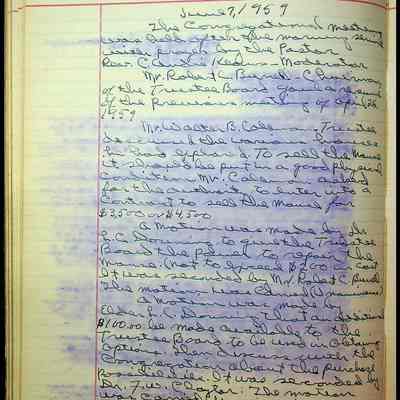 June 7, 1959
The Congregational meeting
was held after the morning service
with prayer by the Pastor
Rev. C. Moderator
Mr. Robert L. Chairman
of the Trustee Board gave a resume
of the Previous meeting of April 26
1959
Mr. Walter B. Coleman, Trustee
discussed the various
To sell the Manse
it should be put in a good physical
condition. Mr. Coleman asked
for the authority to enter into a
Contract to sell the Manse for
$3,500 or $4,500
A Motion was made by Dr.
L. C. Downing to give the Trustee
Board the Power to repair the
Manse (not to exceed $ in cost
It was seconded by Mr. Robert L.
The motion was carried (Unanimous)
A motion was made by
Elder L. C. Downing that an additional
$100.00 be made available to the
Trustee Board to be used in obtaining
options. Then discuss with the
Congregation about the purchase
possibilities. It was seconded by
Dr. F. W. Claytor. The motion
was Carried